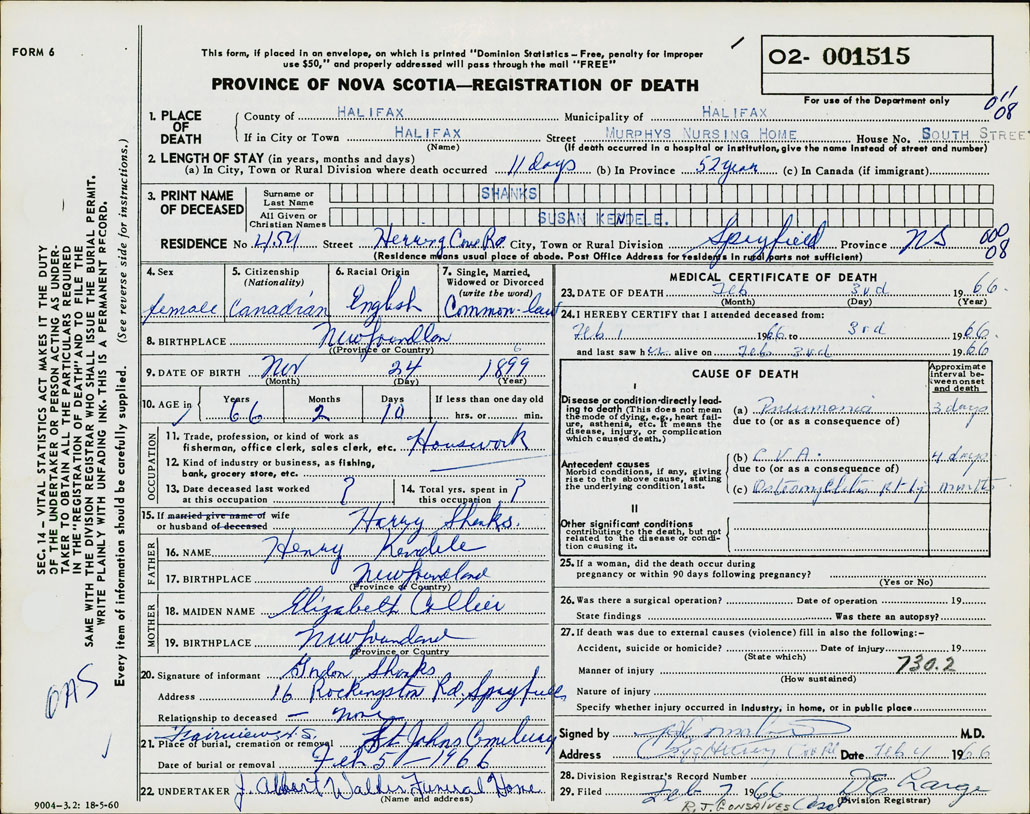 FORM 6
This form, if placed in an envelope, on which is printed "Dominion Statistics–Free, penalty for improper
use $50," and properly addressed will pass through the mail "FREE"
PROVINCE OF NOVA SCOTIA—REGISTRATION OF DEATH
O2- 001515
For use of the Department only
011
08
1. PLACE OF DEATH
County of HALIFAX Municipality of HALIFAX
If in City or Town HALIFAX Street MURPHYS NURSING HOME House No. SOUTH STREET
(Name) (If death occurred in a hospital or institution, give the name instead of street and number)
2. LENGTH OF STAY (in years, months and days)
(a) In City, Town or Rural Division where death occurred 11 days (b) In Province 52 year (c) In Canada (if immigrant)
3. PRINT NAME OF DECEASED
Surname or Last Name SHANKS
All Given or Christian Names SUSAN KENDELE.
RESIDENCE No. 454 Street Herring Cove Rd City, Town or Rural Division Spryfield Province NS
000
08
(Residence means usual place of abode. Post Office Address for residents in rural parts not sufficient)
4. Sex
female
5. Citizenship (Nationality)
Canadian
6. Racial Origin
English
7. Single, Married, Widowed or Divorced (write the word)
Common-law
8. BIRTHPLACE Newfoundlan
(Province or Country)
9. DATE OF BIRTH Nov 24 1899
6
(Month) (Day) (Year)
10. AGE in Years Months Days If less than one day old
66 2 10 hrs. or min.
OCCUPATION
11. Trade, profession, or kind of work as fisherman, office clerk, sales clerk, etc. Housework
12. Kind of industry or business, as fishing, bank, grocery store, etc.
13. Date deceased last worked at this occupation ?
14. Total yrs. spent in this occupation ?
15. If married give name of wife or husband of deceased Harry Shanks.
FATHER
16. NAME Henry Kendele
17. BIRTHPLACE Newfoundland
(Province or Country)
MOTHER
18. MAIDEN NAME Elizabeth Collier
19. BIRTHPLACE Newfoundland
(Province or Country)
20. Signature of informant Gordon Shanks
Address 16 Rockingston Rd, Spryfield
Relationship to deceased — none
Fairview N.S.
21. Place of burial, cremation or removal St Johns Cemetery
Date of burial or removal Feb 5 - 1966
22. UNDERTAKER J. Albert Walker Funeral Home
(Name and address)
MEDICAL CERTIFICATE OF DEATH
23. DATE OF DEATH Feb 3rd 1966.
(Month) (Day) (Year)
24. I HEREBY CERTIFY that I attended deceased from:
Feb 1 1966 to 3rd 1966
and last saw her alive on Feb 3rd 1966
CAUSE OF DEATH
Approximate interval between onset and death
I
Disease or condition directly leading to death (This does not mean the mode of dying, e.g., heart failure, asthenia, etc. It means the disease, injury, or complication which caused death.)
(a) Pneumonia 3 days
due to (or as a consequence of)
Antecedent causes
Morbid conditions, if any, giving rise to the above cause, stating the underlying condition last.
(b) C.V.A. 4 days
due to (or as a consequence of)
(c) Osteomyelitis rt hip months
II
Other significant conditions
contributing to the death, but not related to the disease or condition causing it.
25. If a woman, did the death occur during pregnancy or within 90 days following pregnancy?
(Yes or No)
26. Was there a surgical operation? Date of operation 19
State findings Was there an autopsy?
27. If death was due to external causes (violence) fill in also the following:–
Accident, suicide or homicide? Date of injury 19
(State which)
730.2
Manner of injury
(How sustained)
Nature of injury
Specify whether injury occurred in industry, in home, or in public place
Signed by M.D.
Address Date Feb 4 1966
28. Division Registrar's Record Number
29. Filed Feb 7 1966 D E Range
(Division Registrar)
R.J. GONSALVES
SEC. 14 – VITAL STATISTICS ACT MAKES IT THE DUTY
OF THE UNDERTAKER OR PERSON ACTING AS UNDER-
TAKER TO OBTAIN ALL THE PARTICULARS REQUIRED
IN THE "REGISTRATION OF DEATH" AND TO FILE THE
SAME WITH THE DIVISION REGISTRAR WHO SHALL ISSUE THE BURIAL PERMIT.
WRITE PLAINLY WITH UNFADING INK. THIS IS A PERMANENT RECORD.
Every item of information should be carefully supplied. (See reverse side for instructions.)
OAS
9004-3.2: 18-5-60